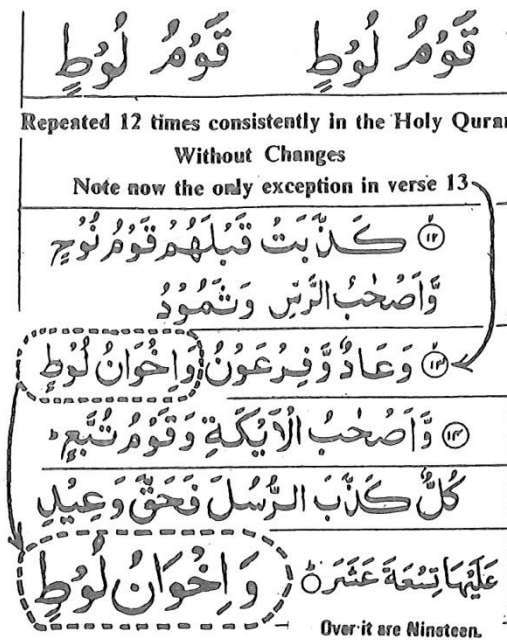 قَوْمُ لُوْطٍ قَوْمُ لُوْطٍ
Repeated 12 times consistently in the Holy Quran
Without Changes
Note now the only exception in verse 13
۱۲ كَذَّبَتْ قَبْلَهُمْ قَوْمُ نُوْحٍ
وَّاَصْحٰبُ الرَّسِّ وَثَمُوْدُ
۱۳ وَعَادٌ وَّفِرْعَوْنُ وَاِخْوَانُ لُوْطٍ
۱۴ وَّاَصْحٰبُ الْاَيْكَةِ وَقَوْمُ تُبَّعٍ ؕ
كُلٌّ كَذَّبَ الرُّسُلَ فَحَقَّ وَعِيْدِ
عَلَيْهَا تِسْعَةَ عَشَرَ وَاِخْوَانُ لُوْطٍ
Over it are Nineteen.